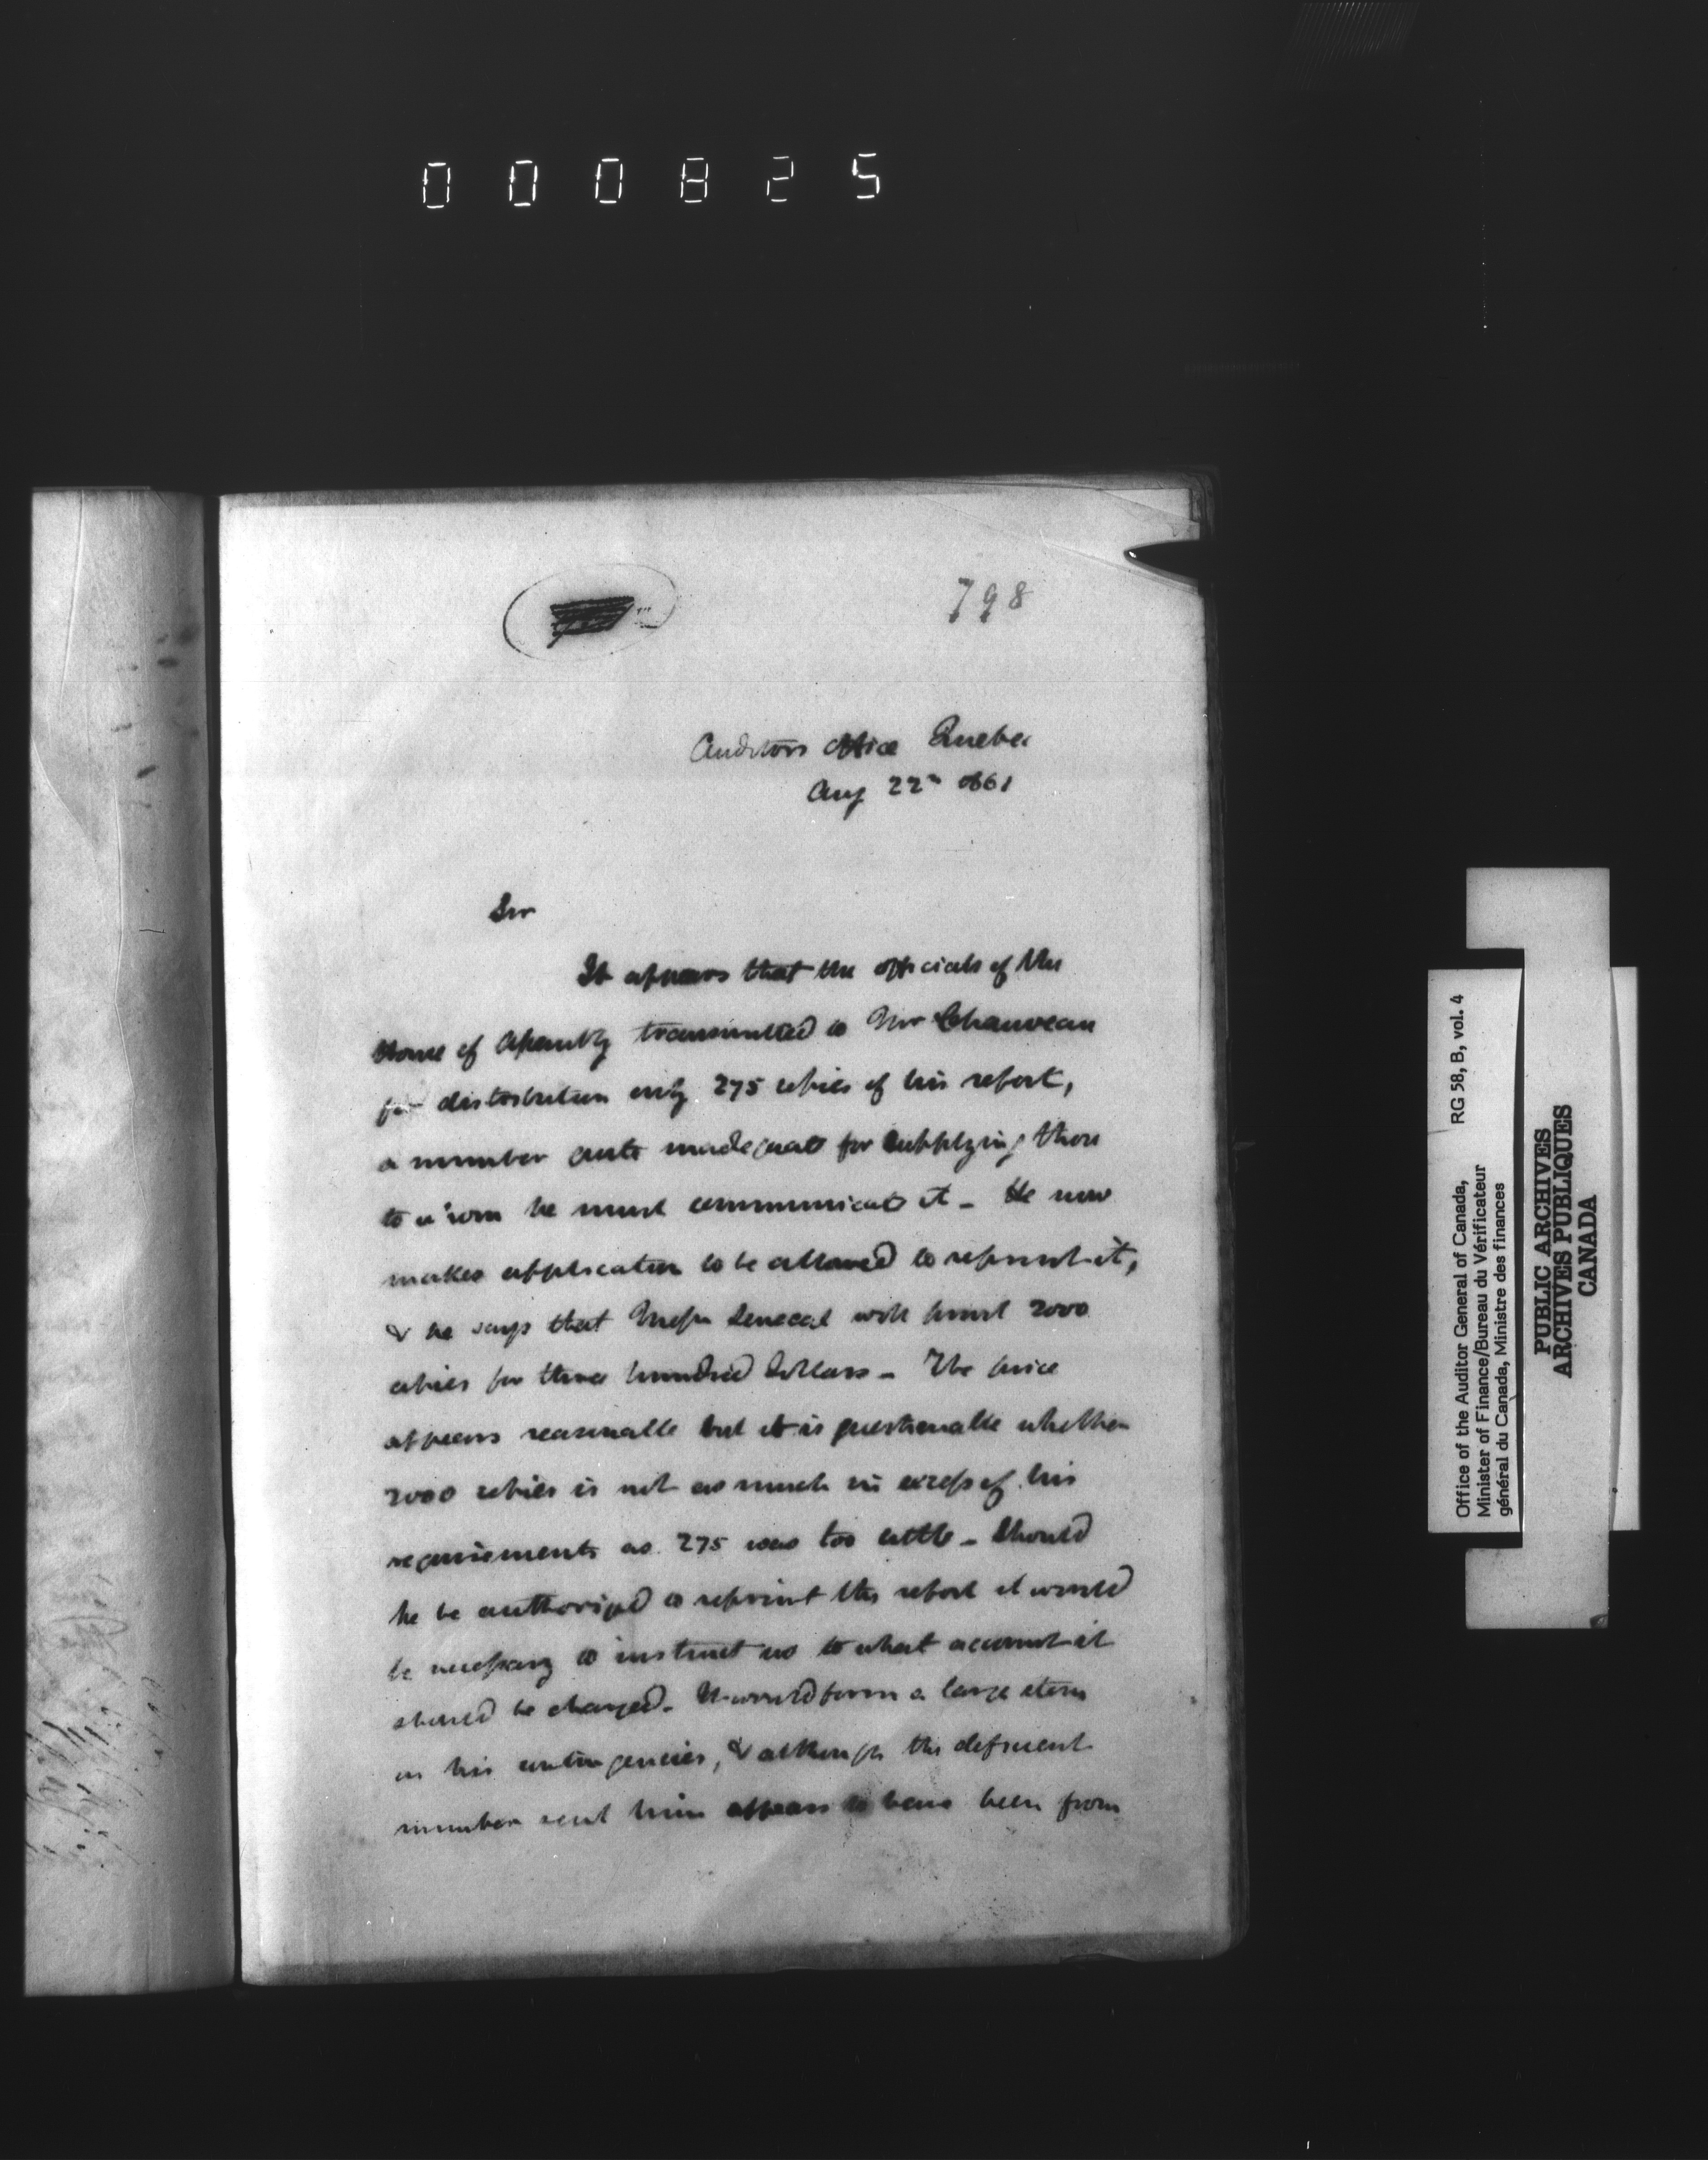 000825
798
Auditors Office Quebec
Aug 22nd 1861
Sir
It appears that the officials of the
House of Assembly transmitted to Mr Chauveau
for distribution only 275 copies of his report,
a number quite inadequate for supplying those
to whom he must communicate it - He now
makes application to be allowed to reprint it,
& he says that Messrs Senecal will print 2000
copies for three hundred dollars - The price
appears reasonable but it is questionable whether
2000 copies is not as much in excess of his
requirements as 275 was too little - Should
he be authorized to reprint the report it would
be necessary to instruct us to what account it
should be charged - It would form a large item
in his contingencies, & although the deficient
number sent him appears to have been from
Office of the Auditor General of Canada,
Minister of Finance/Bureau du Vérificateur
général du Canada, Ministre des finances
RG 58, B, vol. 4
PUBLIC ARCHIVES
ARCHIVES PUBLIQUES
CANADA